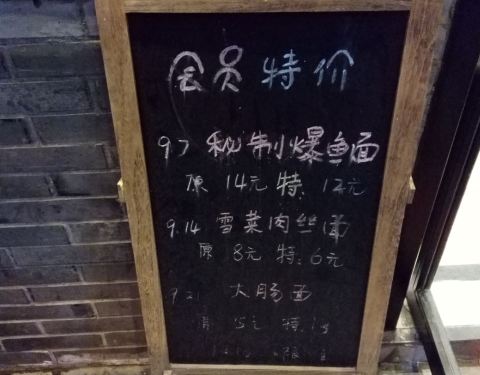 会员特价
9.7 秘制爆鱼面
原 14元 特: 12元
9.14 雪菜肉丝面
原 8元 特: 6元
9.21 大肠面